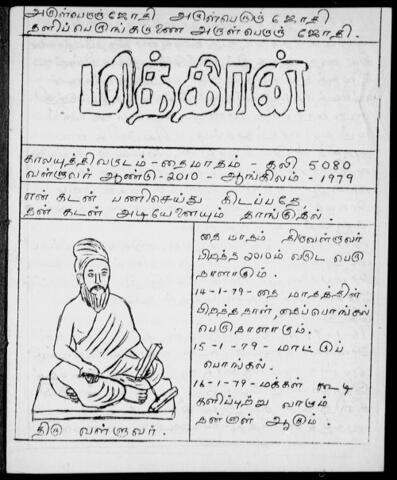 அருள்பெருஞ்ஜோதி அருள்பெருஞ் ஜோதி
தனிப்பெருங்கருணை அருள்பெருஞ் ஜோதி.
மித்திரன்
காலயுத்திவருடம் - தைமாதம் - கலி 5080
வள்ளுவர் ஆண்டு - 2010 - ஆங்கிலம் - 1979
என் கடன் பணிசெய்து கிடப்பதே,
தன் கடன் அடியேனையும் தாங்குதல்.
தை மாதம் திருவள்ளுவர்
பிறந்த 2010ம் வருட பெரு
நாளாகும்.
14-1-79-தை மாதத்தின்
பிறந்தநாள், தைப்பொங்கல்
பெருநாளாகும்.
15-1-79 - மாட்டுப்
பொங்கல்.
16-1-79-மக்கள் கூடி
களிப்புற்று வாழும்
நன்னாள் ஆகும்.
திரு வள்ளுவர்.